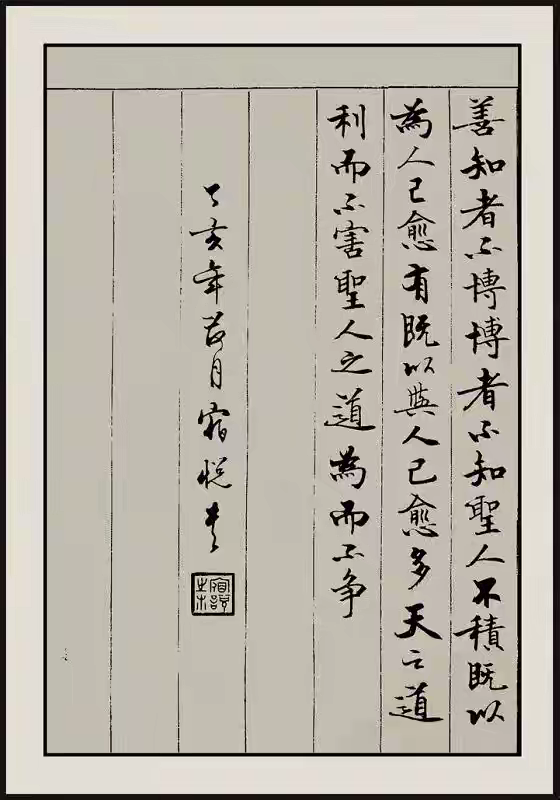 善知者不博博者不知聖人不積既以
為人己愈有既以與人己愈多天之道
利而不害聖人之道為而不争
亥年月宿悦書